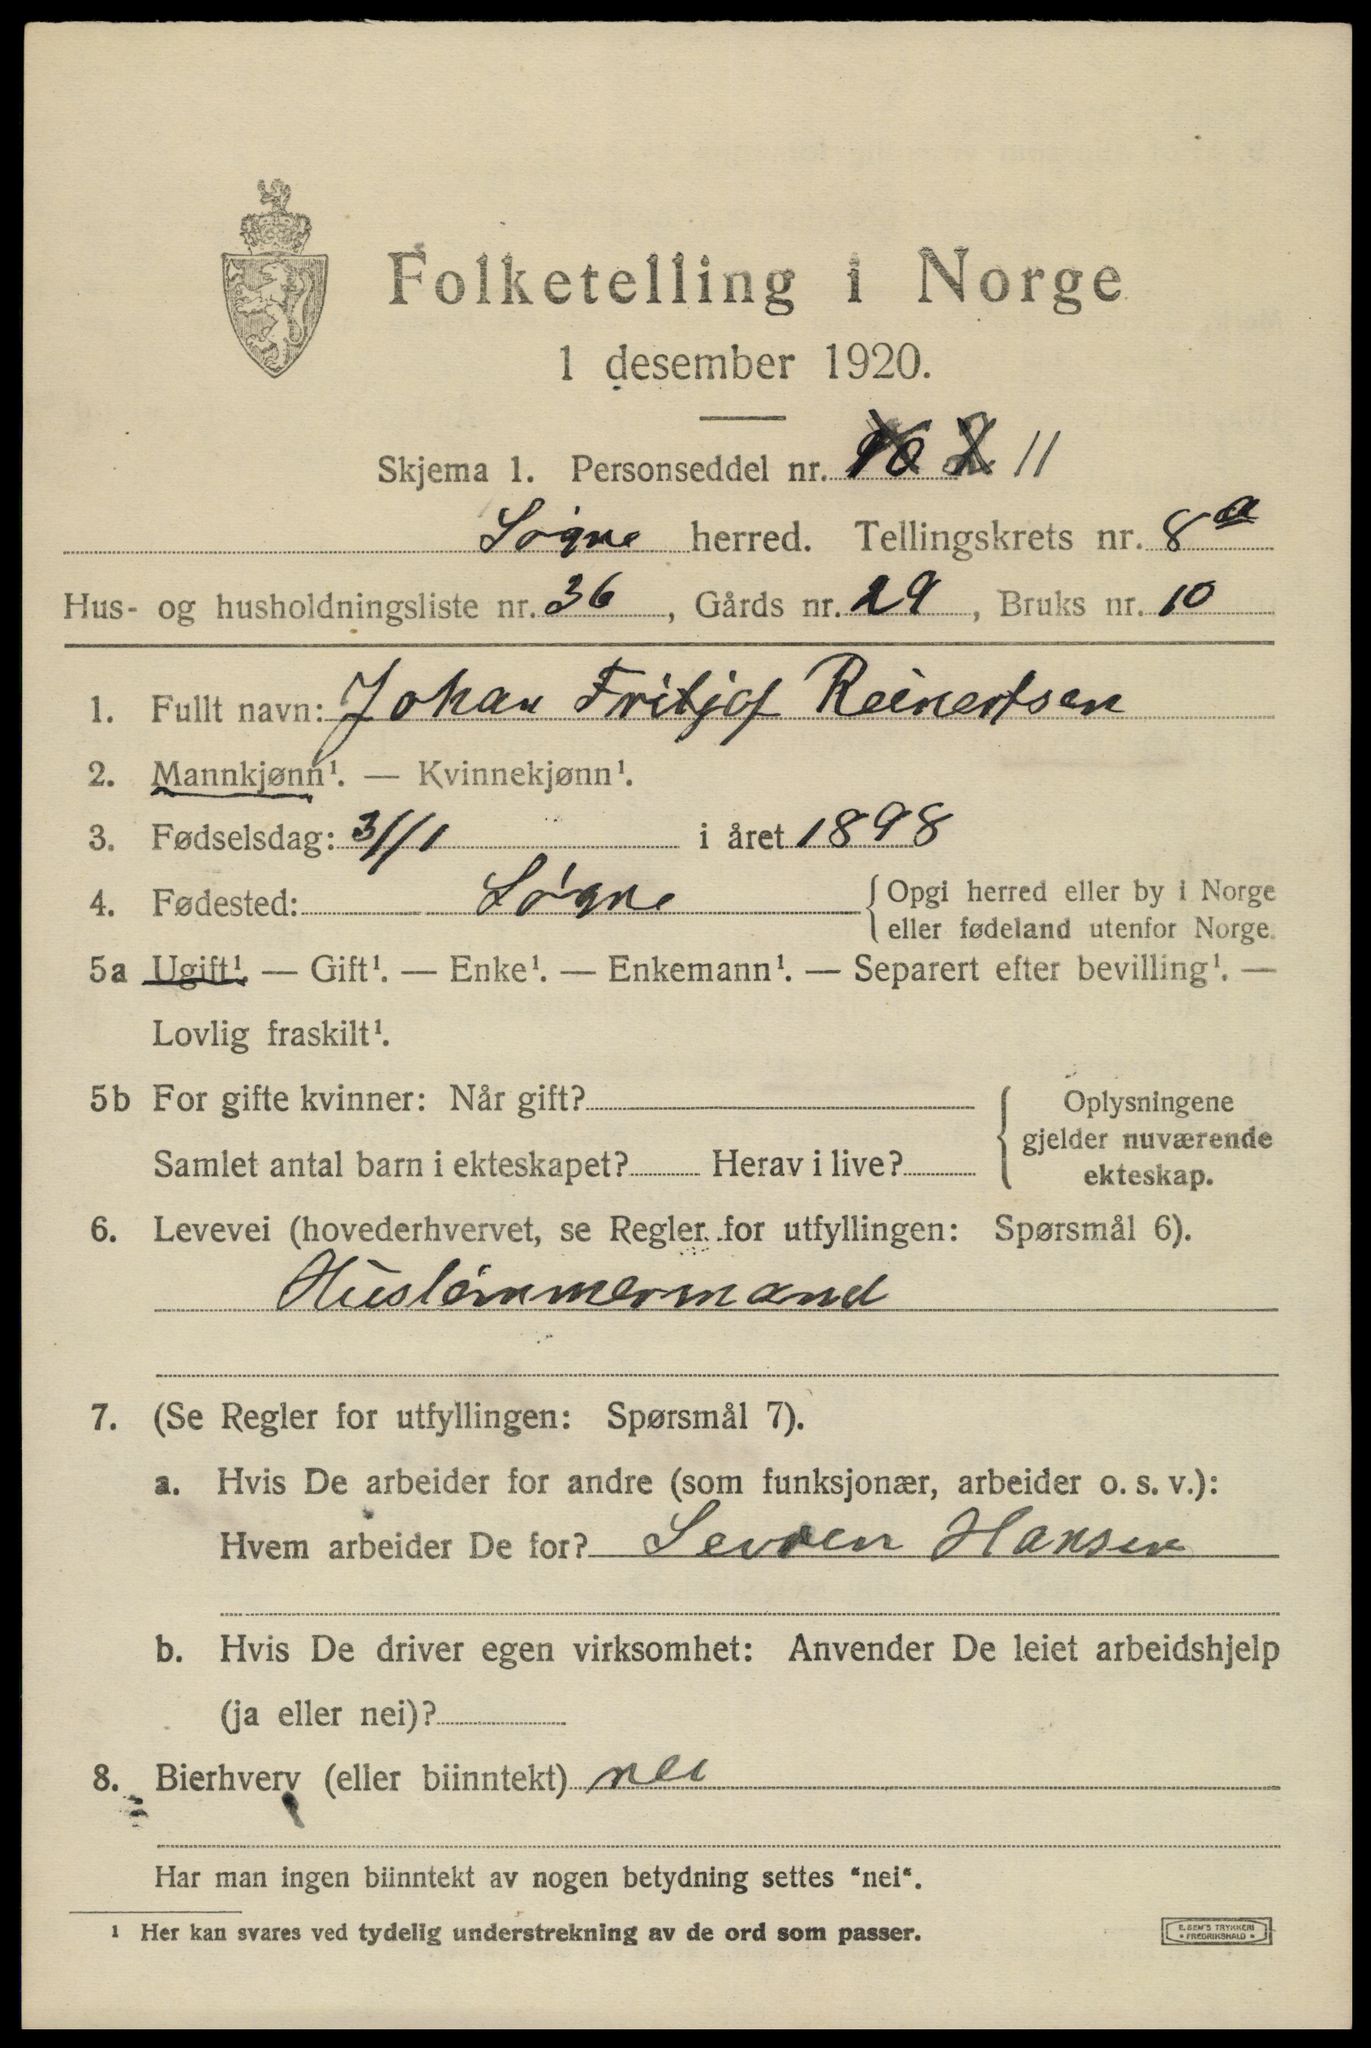 Folketelling i Norge
1 desember 1920.
Skjema 1. Personseddel nr. 10 2 11
Søgne herred. Tellingskrets nr. 8a
Hus- og husholdningsliste nr. 36, Gårds nr. 29, Bruks nr. 10
1. Fullt navn: Johan Fritjof Reinertsen
2. Mannkjønn¹. — Kvinnekjønn¹.
3. Fødselsdag: 3/1 i året 1898
4. Fødested: Søgne { Opgi herred eller by i Norge
eller fødeland utenfor Norge.
5a Ugift¹ — Gift¹. — Enke¹. — Enkemann¹. — Separert efter bevilling¹. —
Lovlig fraskilt¹.
5b For gifte kvinner: Når gift?
Samlet antal barn i ekteskapet? Herav i live?
Oplysningene
gjelder nuværende
ekteskap.
6. Levevei (hovederhvervet, se Regler for utfyllingen: Spørsmål 6).
Hustømmermand
7. (Se Regler for utfyllingen: Spørsmål 7).
a. Hvis De arbeider for andre (som funksjonær, arbeider o. s. v.):
Hvem arbeider De for? Hansen
b. Hvis De driver egen virksomhet: Anvender De leiet arbeidshjelp
(ja eller nei)?
8. Bierhverv (eller biinntekt) nei
Har man ingen biinntekt av nogen betydning settes "nei".
¹ Her kan svares ved tydelig understrekning av de ord som passer.
E. SEM'S TRYKKERI
• FREDRIKSHALD •